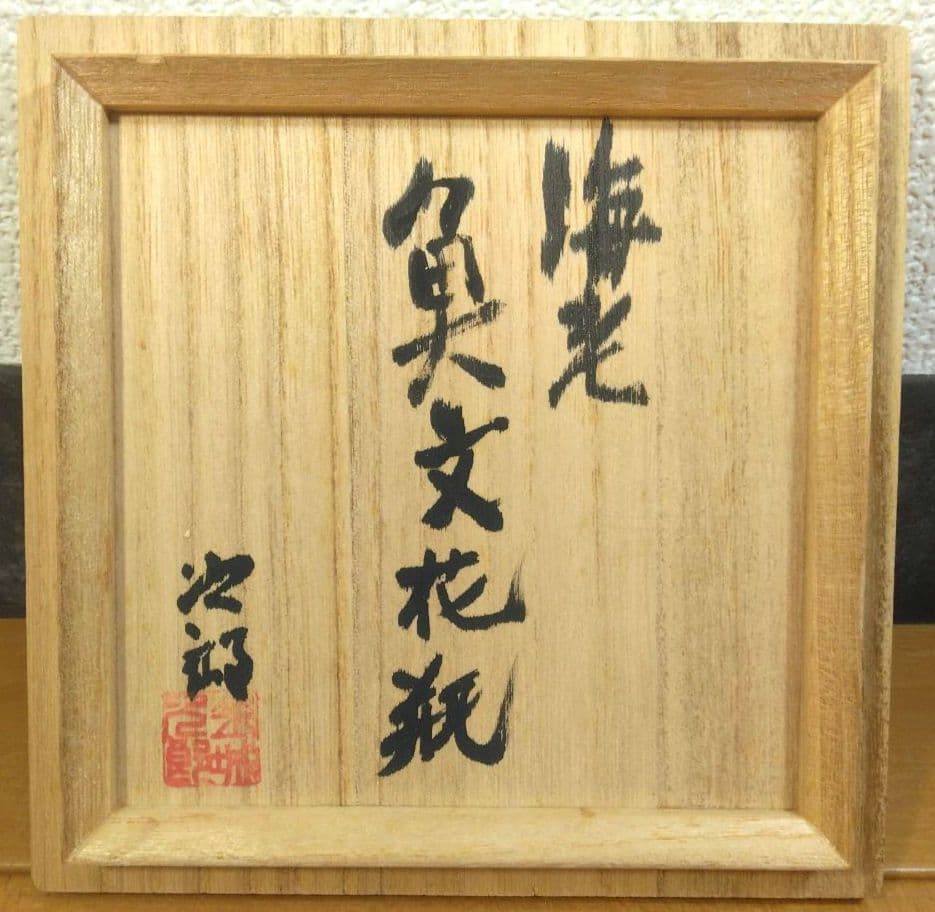 海老
魚文花瓶
次郎